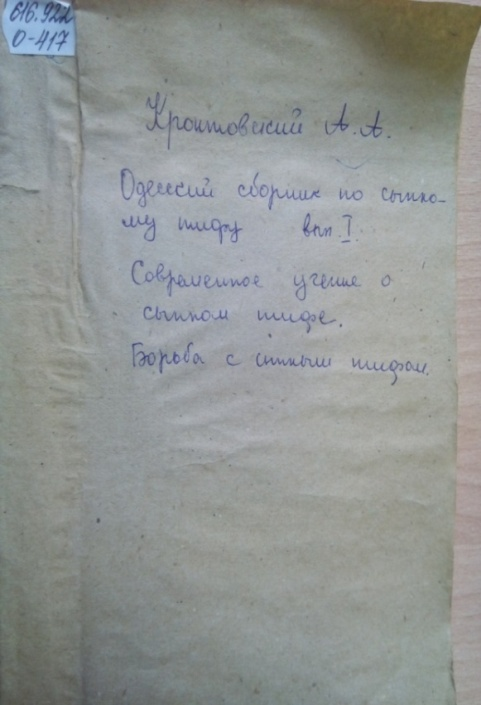 616.922
О-417
Кронтовский А. А.
Одесский сборник по сыпно-
му тифу вып. I.
Современное учение о
сыпном тифе.
Борьба с сыпным тифом.